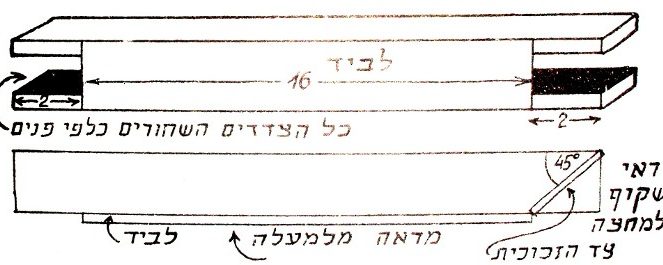 לביד
16
2
2
כל הצדדים השחורים כלפי פנים
45°
ראי
שקוף
למחצה
לביד
מראה מלמעלה
צד הזכוכית